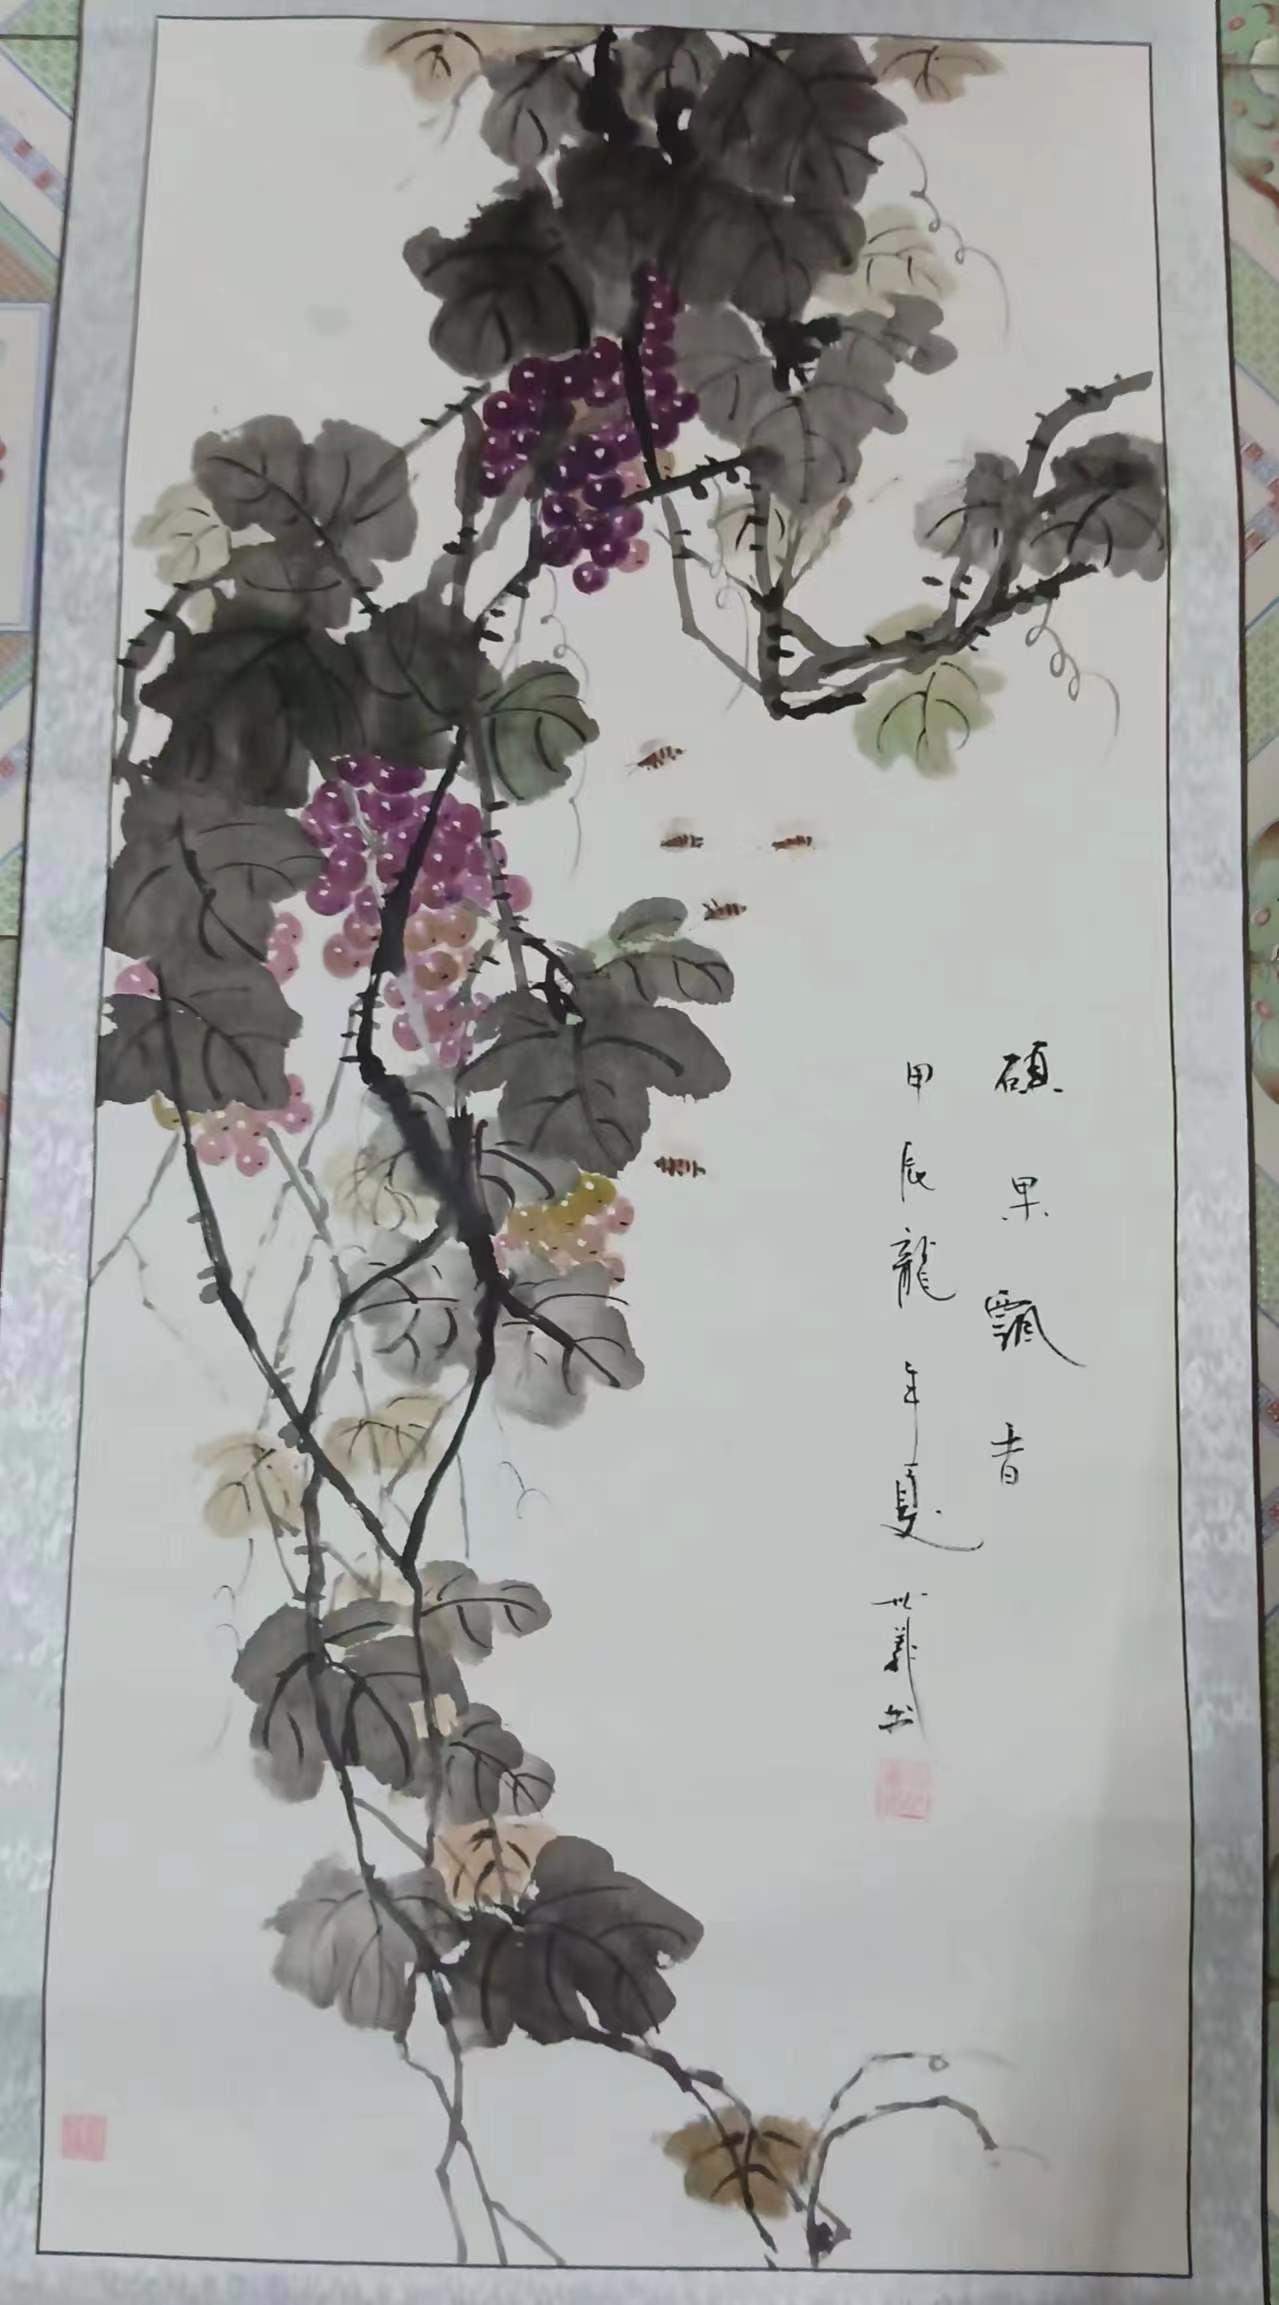 碩果飄香
甲辰龍年夏